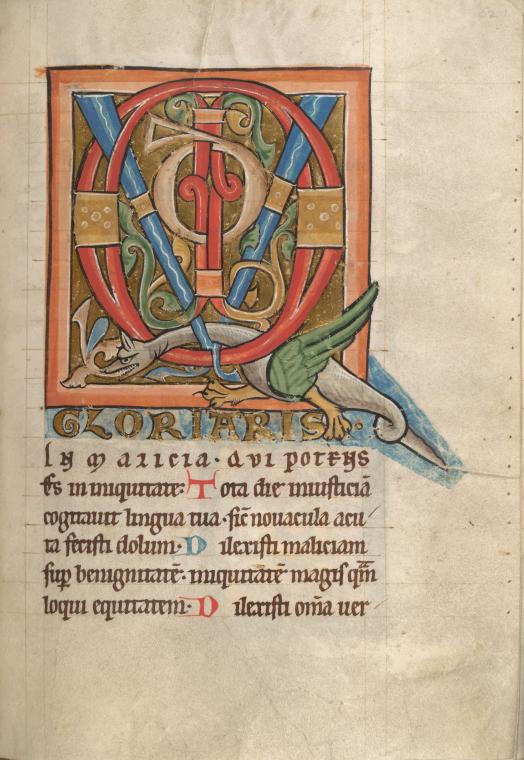 QVID
GLORIARIS·
IN MALICIA·QVI POTENS
ES in iniquitate: Tota die iniusticiā
cogitauit lingua tua·sic nouacula acu/
ta fecisti dolum· Dilexisti maliciam
sup̄ benignitatē· iniquitatē magis qm̄
loqui equitatem· Dilexisti om̄a uer